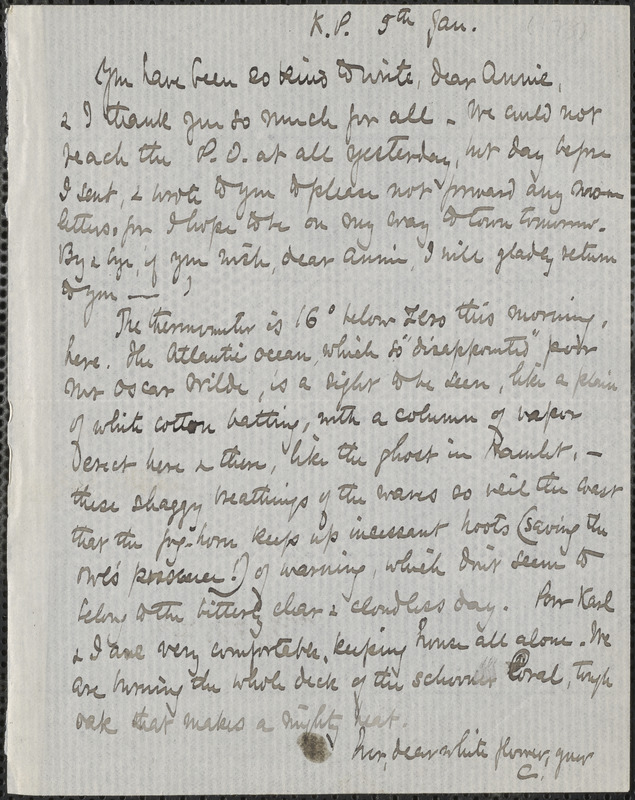 K. P. 5th Jan.
You have been so kind to write, dear Annie,
& I thank you so much for all - We could not
reach the P. O. at all yesterday, but day before
I sent, & wrote to you to please not forward any more
letters, for I hope to be on my way to town tomorrow.
By & bye, if you wish, dear Annie, I will gladly return
to you —
The thermometer is 16° below zero this morning,
here. The Atlantic ocean, which so "disappointed" poor
Mr Oscar Wilde, is a sight to be seen, like a plain
of white cotton batting, with a column of vapor
erect here & there, like the ghost in Hamlet, -
these shaggy breathings of the waves so veil the coast
that the fog-horn keeps up incessant hoots (saving the
owl's presence!) of warning, which don't seem to
belong to the bitterly clear & cloudless day. Poor Karl
& I are very comfortable, keeping house all alone. We
are burning the whole deck of the schooner Coral, tough
oak that makes a mighty heat.
dear white flower, your
C.